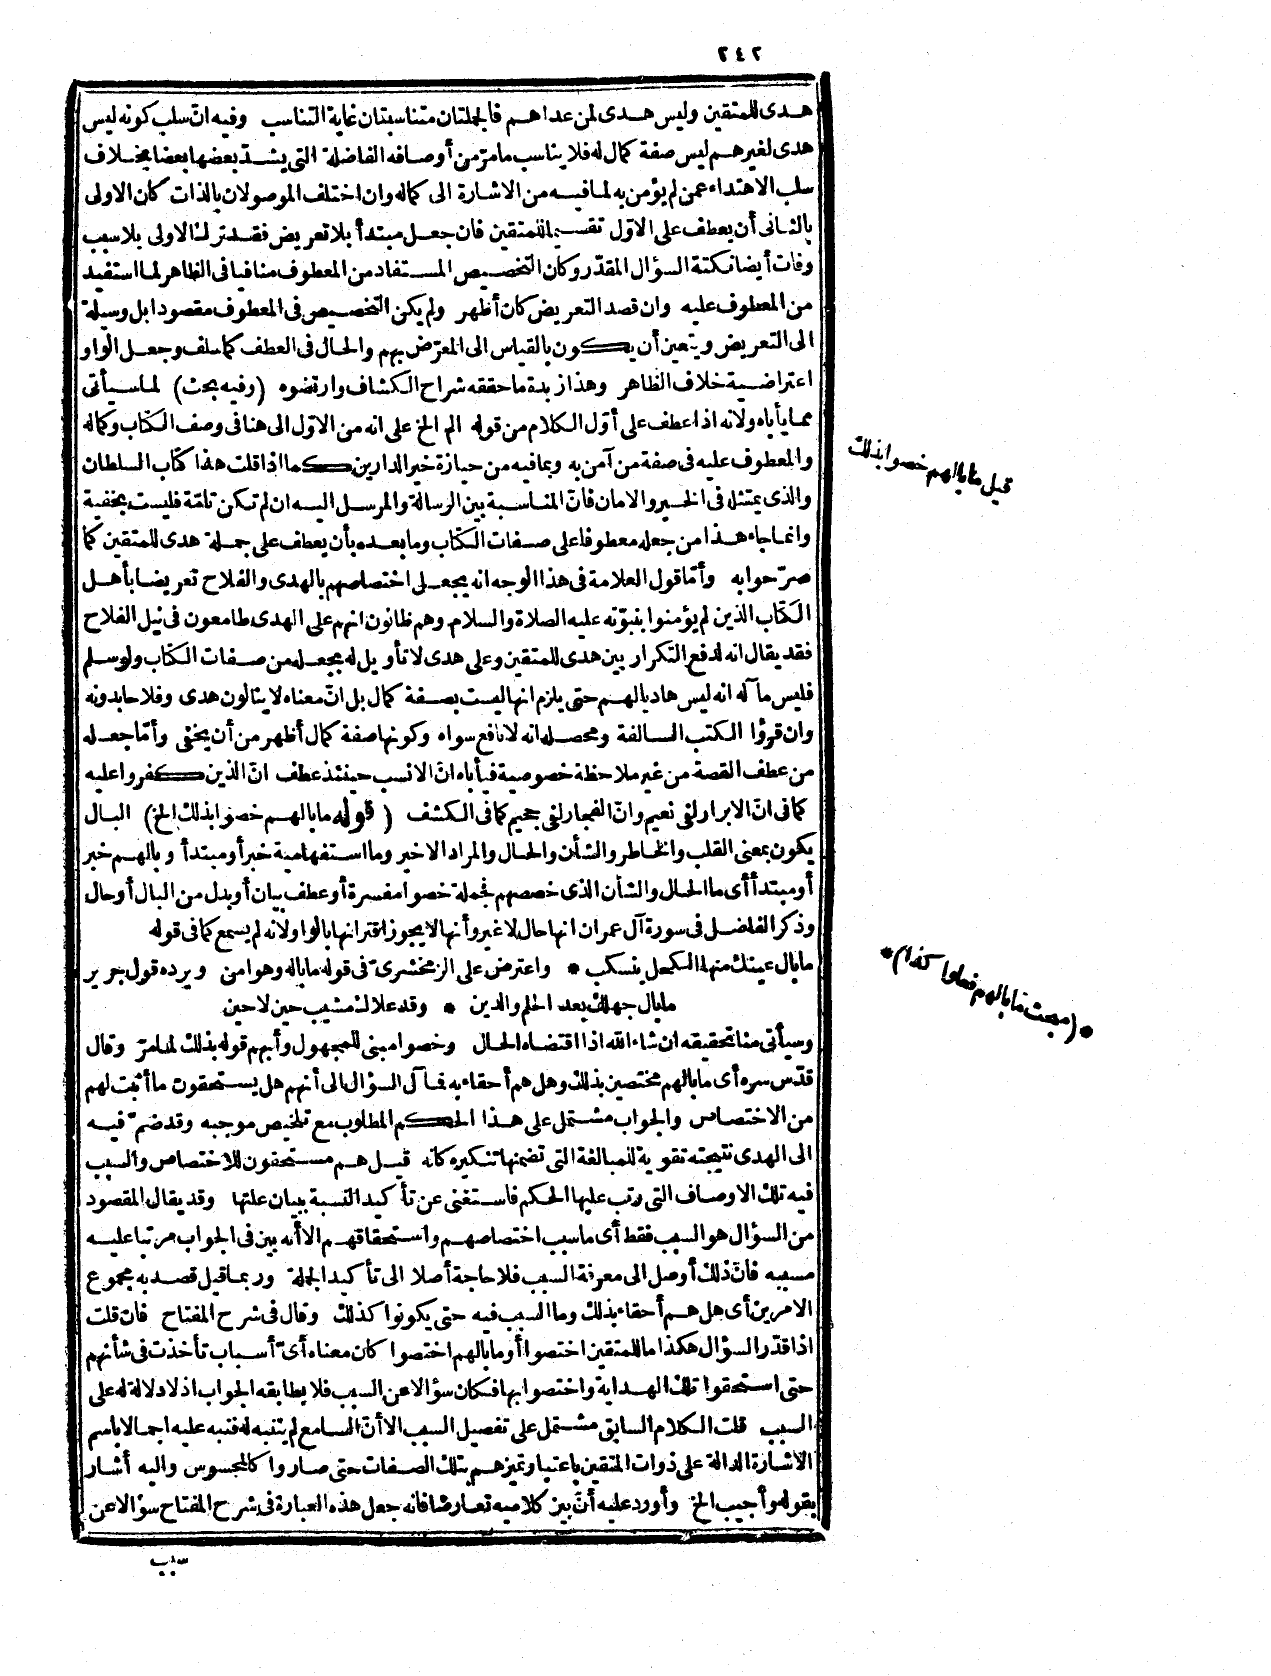 ٢٤٢
هدى للمتقين وليس هدى لمن عداهم فالجملتان متناسبتان غاية التناسب وفيه انّ سلب كونه ليس
هدى لغيرهم ليس صفة كمال له فلا يناسب مامرّ من أوصافه الفاضلة التى يشدّ بعضها بعضا بخلاف
سلب الاهتداء عمن لم يؤمن به لما فيه من الاشارة الى كماله وان اختلف الموصولان بالذات كان الاولى
بالثانى أن يعطف على الاوّل تقسيما للمتقين فان جعل مبتدأ بلا تعريض فقد ترك الاولى بلا سبب
وفات أيضا نكتة السؤال المقدّر وكان التخصيص المستفاد من المعطوف منافيا فى الظاهر لما استفيد
من المعطوف عليه وان قصد التعريض كان أظهر ولم يكن التخصيص فى المعطوف مقصودا بل وسيلة
الى التعريض ويتعين أن يكون بالقياس الى المعرّض بهم والحال فى العطف كما سلف وجعل الواو
اعتراضية خلاف الظاهر وهذا زبدة ما حققه شراح الكشاف وارتضوه (وفيه بحث) لما سيأتى
مما يأباه ولانه اذا عطف على أوّل الكلام من قوله الم الخ على انه من الاوّل الى هنا فى وصف الكتاب وكماله
والمعطوف عليه فى صفة من آمن به وبما فيه من حيازة خير الدارين كما اذا قلت هذا كتاب السلطان
والذى يمتثل فى الخير والامان فانّ المناسبة بين الرسالة والمرسل اليه ان لم تكن تامّة فليست بخفية
وانما جاء هذا من جعله معطوفا على صفات الكتاب وما بعده بأن يعطف على جملة هدى للمتقين كما
صرّحوا به وأمّا قول العلامة فى هذا الوجه انه يجعل اختصاصهم بالهدى والفلاح تعريضا بأهل
الكتاب الذين لم يؤمنوا بنبوّته عليه الصلاة والسلام وهم ظانون انهم على الهدى طامعون فى نيل الفلاح
فقد يقال انه لدفع التكرار بين هدى للمتقين وعلى هدى لا تأويل له بجعله من صفات الكتاب ولو سلم
فليس مآله انه ليس هاديا لهم حتى يلزم انها ليست بصفة كمال بل انّ معناه لا ينالون هدى وفلاحا بدونه
وان قرؤا الكتب السالفة ومحصله انه لا نافع سواه وكونها صفة كمال أظهر من أن يخفى وأمّا جعله
من عطف القصة من غير ملاحظة خصوصية فيأباه انّ الانسب حينئذ عطف انّ الذين كفروا عليه
كما فى انّ الابرار لفى نعيم وانّ الفجار لفى جحيم كما فى الكشف (قوله ما بالهم خصوا بذلك الخ) البال
يكون بمعنى القلب والخاطر والشأن والحال والمراد الاخير وما استفهامية خبر أو مبتدأ وبالهم خبر
أو مبتدأ أى ما الحال والشأن الذى خصصهم فجملة خصوا مفسرة أو عطف بيان أو بدل من البال أو حال
وذكر الفاضل فى سورة آل عمران انها حال لا غير وأنها لا يجوز اقترانها بالواو لانه لم يسمع كما فى قوله
ما بال عينك منها الكحل ينسكب * واعترض على الزمخشرىّ فى قوله ما باله وهو امن ويرده قول جرير
ما بال جهلك بعد الحلم والدين * وقد علاك مشيب حين لا حين
وسيأتى منا تحقيقه ان شاء الله اذا اقتضاه الحال وخصوا مبنى للمجهول وأبهم قوله بذلك لما مرّ وقال
قدّس سره أى ما بالهم مختصين بذلك وهل هم أحقاء به فمآل السؤال الى أنهم هل يستحقون ما أثبت لهم
من الاختصاص والجواب مشتمل على هذا الحكم المطلوب مع تلخيص موجبه وقد ضمّ فيه
الى الهدى نتيجته تقوية للمبالغة التى تضمنها تنكيره كانه قيل هم مستحقون للاختصاص والسبب
فيه تلك الاوصاف التى رتب عليها الحكم فاستغنى عن تأكيد النسبة ببيان علتها وقد يقال المقصود
من السؤال هو السبب فقط أى ما سبب اختصاصهم واستحقاقهم الا أنه بين فى الجواب مرتبا عليه
مسببه فانّ ذلك أوصل الى معرفة السبب فلا حاجة أصلا الى تأكيد الجملة وربما قيل قصد به مجموع
الامرين أى هل هم أحقاء بذلك وما السبب فيه حتى يكونوا كذلك وقال فى شرح المفتاح فان قلت
اذا قدّر السؤال هكذا ما للمتقين اختصوا أو ما بالهم اختصوا كان معناه أىّ أسباب تأخذت فى شأنهم
حتى استحقوا تلك الهداية واختصوا بها فكان سؤالا عن السبب فلا يطابقه الجواب اذ لا دلالة له على
السبب قلت الكلام السابق مشتمل على تفصيل السبب الا أنّ السامع لم يتنبه له فنبه عليه اجمالا باسم
الاشارة الدالة على ذوات المتقين باعتبار تميزهم بتلك الصفات حتى صاروا كالمحسوس واليه أشار
بقوله وأجيب الخ وأورد عليه أنّ بين كلاميه تعارضا فانه جعل هذه العبارة فى شرح المفتاح سؤالا عن
سبب
قيل ما بالهم خصوا بذلك
* (مبحث ما بالهم فعلوا كذا) *